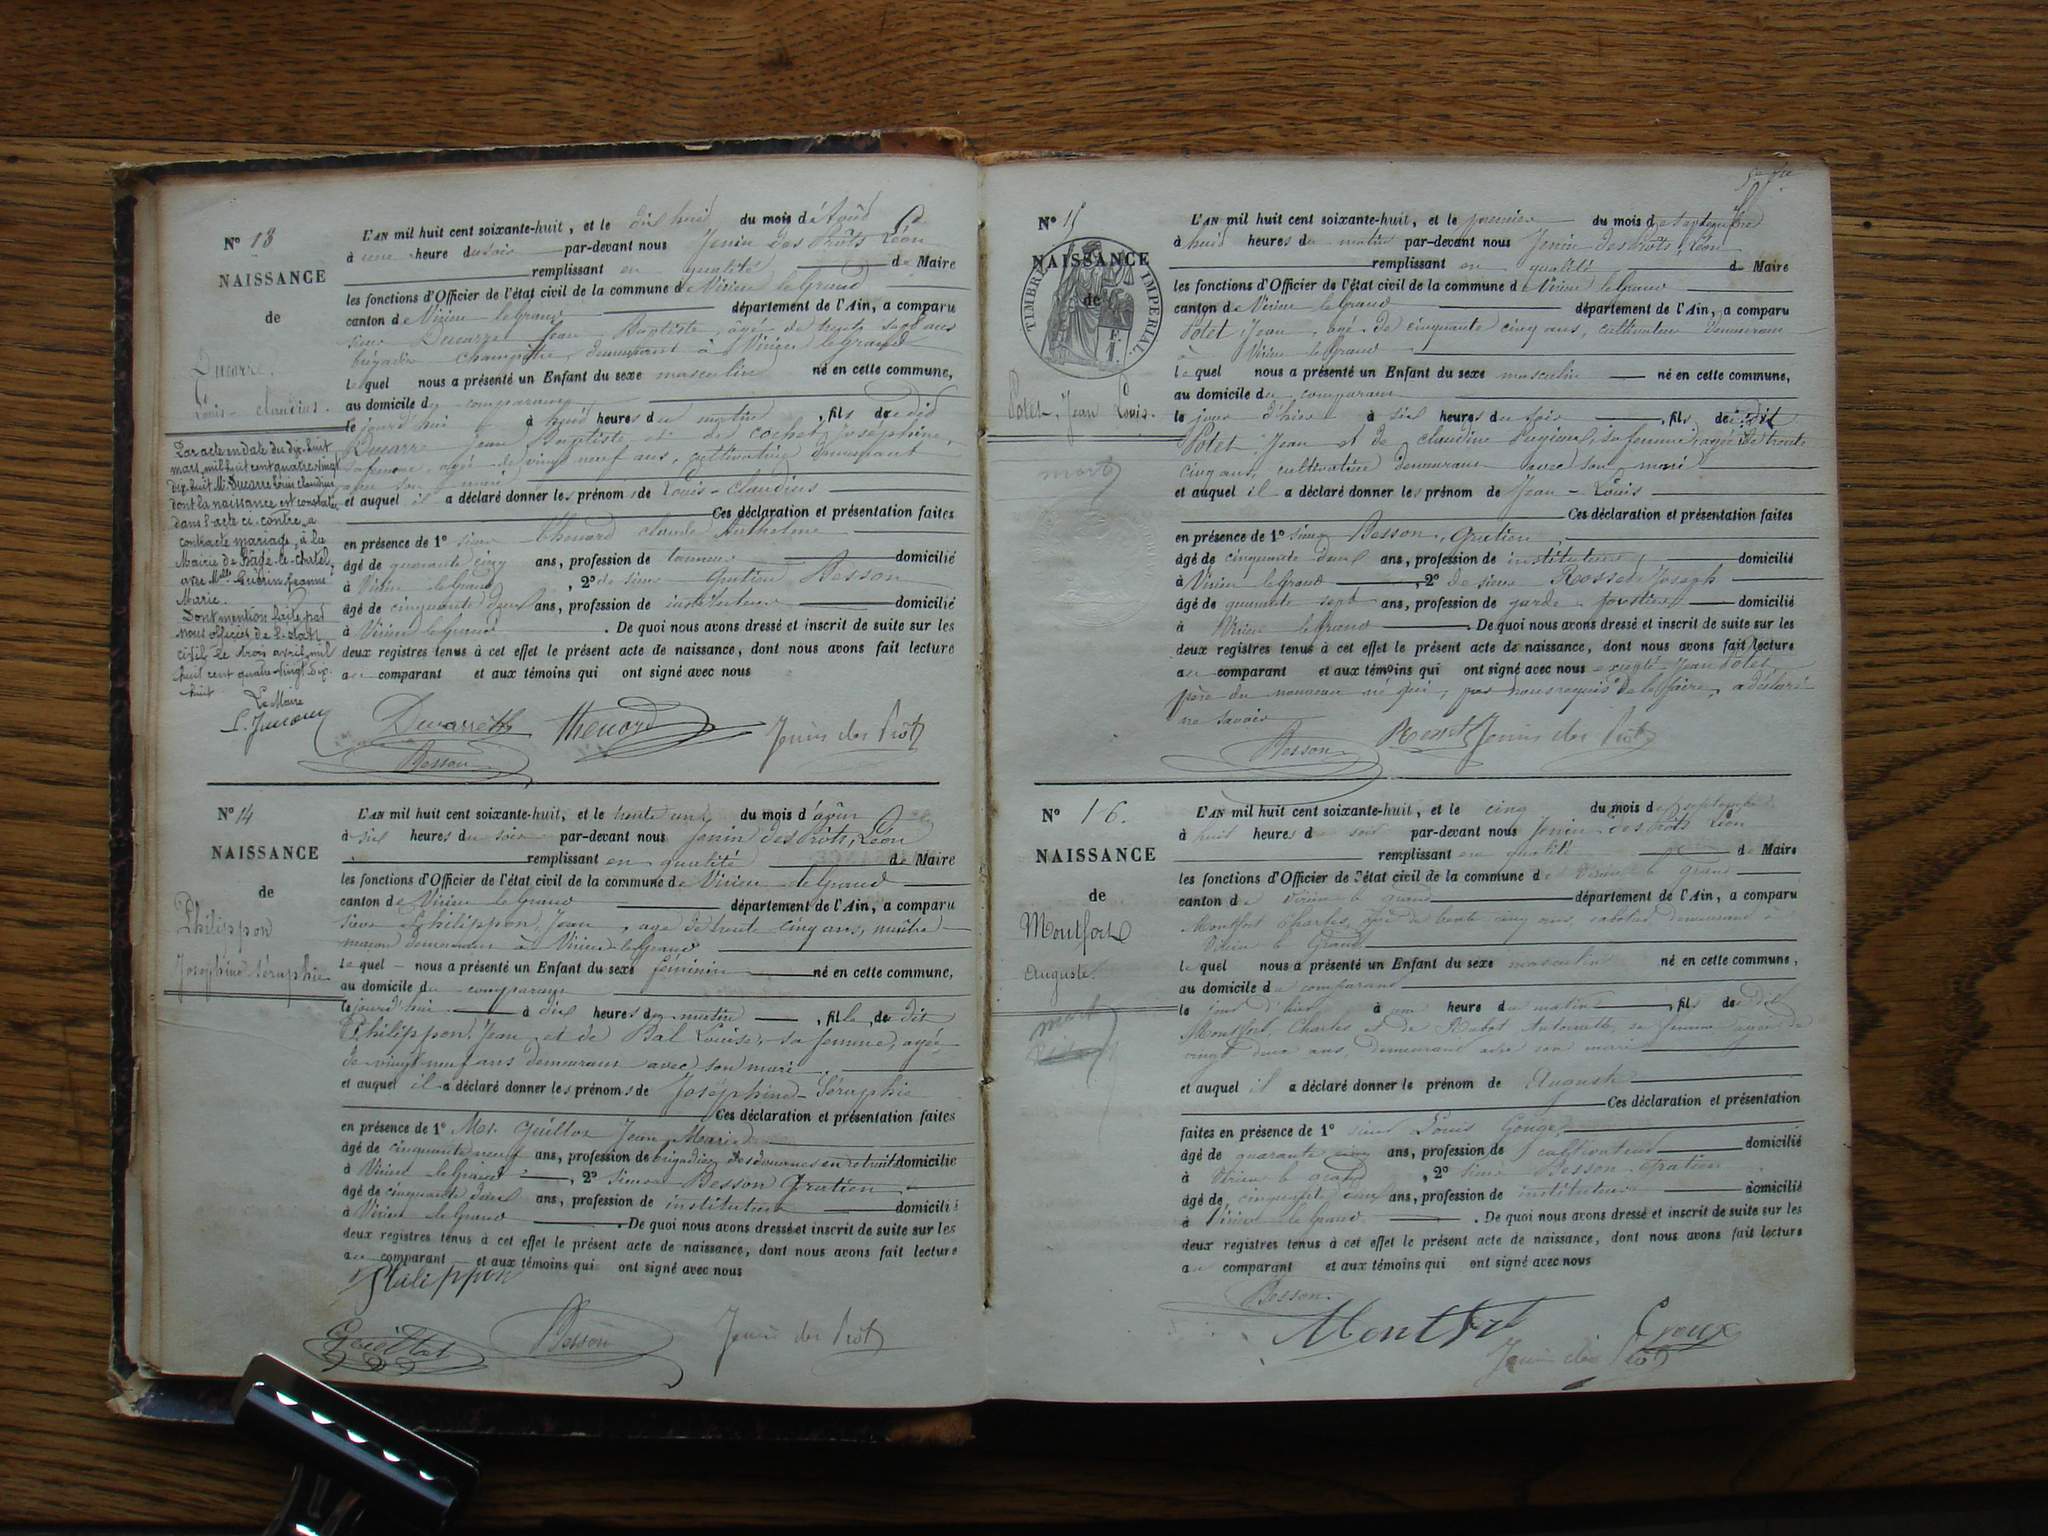 N° 13
NAISSANCE
de
Ducarre
Louis-Claudius.
Par acte en date du dix-huit
mars mil huit cent quatre vingt
dix-huit Mr Ducarre Louis Claudius
dont la naissance est constatée
dans l'acte ci-contre a
contracté mariage, à la
Mairie de Bâgé-le-chatel,
avec Melle Guérin Jeanne
Marie.
Dont mention faite par
nous officier de l'état
civil le trois avril mil
huit cent quatre vingt dix-
huit
Le Maire
L'AN mil huit cent soixante-huit, et le dix huit du mois d'Août
à une heure du soir par-devant nous Jenin des Prôts Léon
remplissant en qualité de Maire
les fonctions d'Officier de l'état civil de la commune de Virieu le Grand
canton de Virieu le Grand département de l'Ain, a comparu
sieur Ducarre Jean Baptiste, âgé de trente sept ans
brigadier champêtre, demeurant à Virieu le Grand
lequel nous a présenté un Enfant du sexe masculin né en cette commune,
au domicile du comparant
le jourd'hui à huit heures du matin, fils de dit
Ducarre Jean Baptiste et de Cochet Joséphine,
sa femme, agée de vingt neuf ans, cultivatrice demeurant
avec son mari
et auquel il a déclaré donner les prénom de Louis-Claudius
Ces déclaration et présentation faites
en présence de 1° sieur Thenard Claude Anthelme
âgé de quarante cinq ans, profession de tanneur domicilié
à Virieu le Grand, 2° de sieur Gratien Besson
âgé de cinquante deux ans, profession de instituteur domicilié
à Virieu le Grand. De quoi nous avons dressé et inscrit de suite sur les
deux registres tenus à cet effet le présent acte de naissance, dont nous avons fait lecture
au comparant et aux témoins qui ont signé avec nous
Ducarre Thenard Jenin des Prôts
Besson
N° 14
NAISSANCE
de
Philippon
Joséphine Séraphie
L'AN mil huit cent soixante-huit, et le trente un du mois d'août
à six heures du soir par-devant nous Jenin des Prôts, Léon
remplissant en qualité de Maire
les fonctions d'Officier de l'état civil de la commune de Virieu-le-Grand
canton de Virieu le Grand département de l'Ain, a comparu
sieur Philippon, Jean, age de trente cinq ans, maître
maçon demeurant à Virieu-le-Grand
lequel nous a présenté un Enfant du sexe féminin né en cette commune,
au domicile du comparant
le jourd'hui à dix heures du matin, fille de dit
Philippon, Jean et de Bal Louise, sa femme, agée
de vingt neuf ans demeurant avec son mari
et auquel il a déclaré donner les prénoms de Joséphine-Séraphie
Ces déclaration et présentation faites
en présence de 1° Mr. Guillot Jean Marie
âgé de cinquante neuf ans, profession de brigadier des douanes en retraite domicilié
à Virieu le Grand, 2° Sieur Besson Gratien
âgé de cinquante deux ans, profession de instituteur domicilié
à Virieu le Grand. De quoi nous avons dressé et inscrit de suite sur les
deux registres tenus à cet effet le présent acte de naissance, dont nous avons fait lecture
au comparant et aux témoins qui ont signé avec nous
Philippon
Guillot Besson Jenin des Prôts
N° 15
NAISSANCE
de
TIMBRE IMPERIAL.
F. 1.
Potet, Jean Louis.
mort
L'AN mil huit cent soixante-huit, et le premier du mois de septembre
à huit heures du matin par-devant nous Jenin des Prôts, Léon
remplissant en qualité de Maire
les fonctions d'Officier de l'état civil de la commune de Virieu le Grand
canton de Virieu le Grand département de l'Ain, a comparu
Potet Jean, agé de cinquante cinq ans, cultivateur demeurant
à Virieu le Grand
lequel nous a présenté un Enfant du sexe masculin né en cette commune,
au domicile du comparant
le jour d'hier à six heures du soir, fils de dit
Potet Jean et de Claudine sa femme agée de trente
cinq ans, cultivatrice demeurant avec son mari
et auquel il a déclaré donner les prénom de Jean-Louis
Ces déclaration et présentation faites
en présence de 1° sieur Besson, Gratien,
âgé de cinquante deux ans, profession de instituteur, domicilié
à Virieu le Grand, 2° de sieur Rosset Joseph
âgé de quarante sept ans, profession de garde forestier domicilié
à Virieu le Grand. De quoi nous avons dressé et inscrit de suite sur les
deux registres tenus à cet effet le présent acte de naissance, dont nous avons fait lecture
au comparant et aux témoins qui ont signé avec nous excepté Jean Potet,
père du nouveau né qui, par nous requis de le faire, a déclaré
ne savoir
Besson Rosset Jenin des Prôts
N° 16.
NAISSANCE
de
Montfort
Auguste.
mort
L'AN mil huit cent soixante-huit, et le cinq du mois de septembre
à huit heures du soir par-devant nous Jenin des Prôts Léon
remplissant en qualité de Maire
les fonctions d'Officier de l'état civil de la commune de Virieu le Grand
canton de Virieu le grand département de l'Ain, a comparu
Montfort Charles, agé de trente cinq ans, sabotier demeurant à
Virieu le Grand
lequel nous a présenté un Enfant du sexe masculin né en cette commune,
au domicile du comparant
le jour d'hier à une heure du matin, fils de dit
Montfort, Charles et de Rubot Antoinette sa femme agée de
vingt deux ans, demeurant avec son mari
et auquel il a déclaré donner le prénom de Auguste
Ces déclaration et présentation
faites en présence de 1° sieur Louis Gouge,
âgé de quarante cinq ans, profession de cultivateur domicilié
à Virieu le grand, 2° sieur Besson Gratien
âgé de cinquante deux ans, profession de instituteur domicilié
à Virieu le Grand. De quoi nous avons dressé et inscrit de suite sur les
deux registres tenus à cet effet le présent acte de naissance, dont nous avons fait lecture
au comparant et aux témoins qui ont signé avec nous
Besson
Montfort
Jenin des Prôts